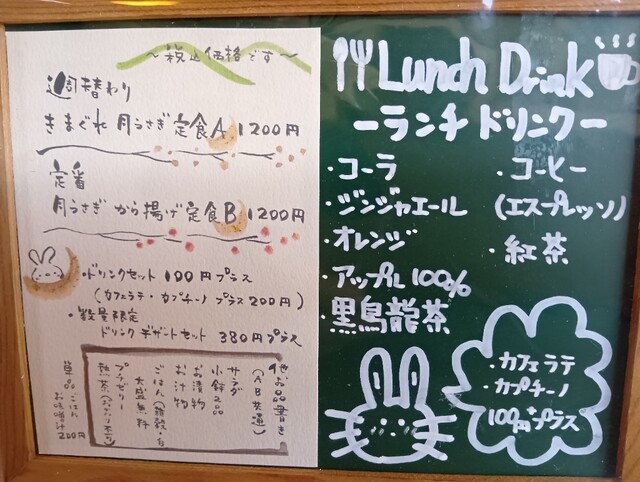 〜税込価格です〜
週替わり
きまぐれ 月うさぎ 定食A 1200円
定番
月うさぎ から揚げ定食B 1200円
・ドリンクセット 100円プラス
(カフェラテ・カプチーノ プラス200円)
・数量限定
ドリンク デザートセット 380円プラス
他お品書き
(AB共通)
サラダ
小鉢200
お漬物
お汁物
ごはん(雑穀・白
大盛無料
プチゼリー
熱茶
単品 ごはん
お味噌汁
200円
Lunch Drink
ーランチ ドリンクー
・コーラ
・ジンジャエール
・オレンジ
・アップル100%
・黒烏龍茶
・コーヒー
(エスプレッソ)
・紅茶
・カフェラテ
・カプチーノ
100円プラス